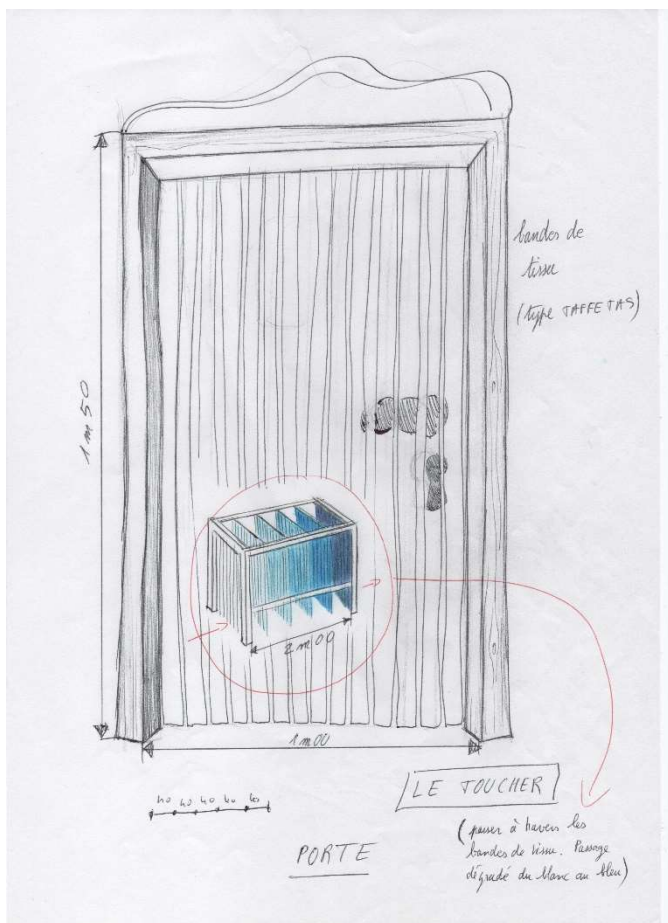 bandes de
tissu
(type TAFFETAS)
1 m 50
2 m 00
1 m 00
40 40 40 40 40
LE TOUCHER
(passer à travers les
bandes de tissu. Passage
dégradé du blanc au bleu)
PORTE